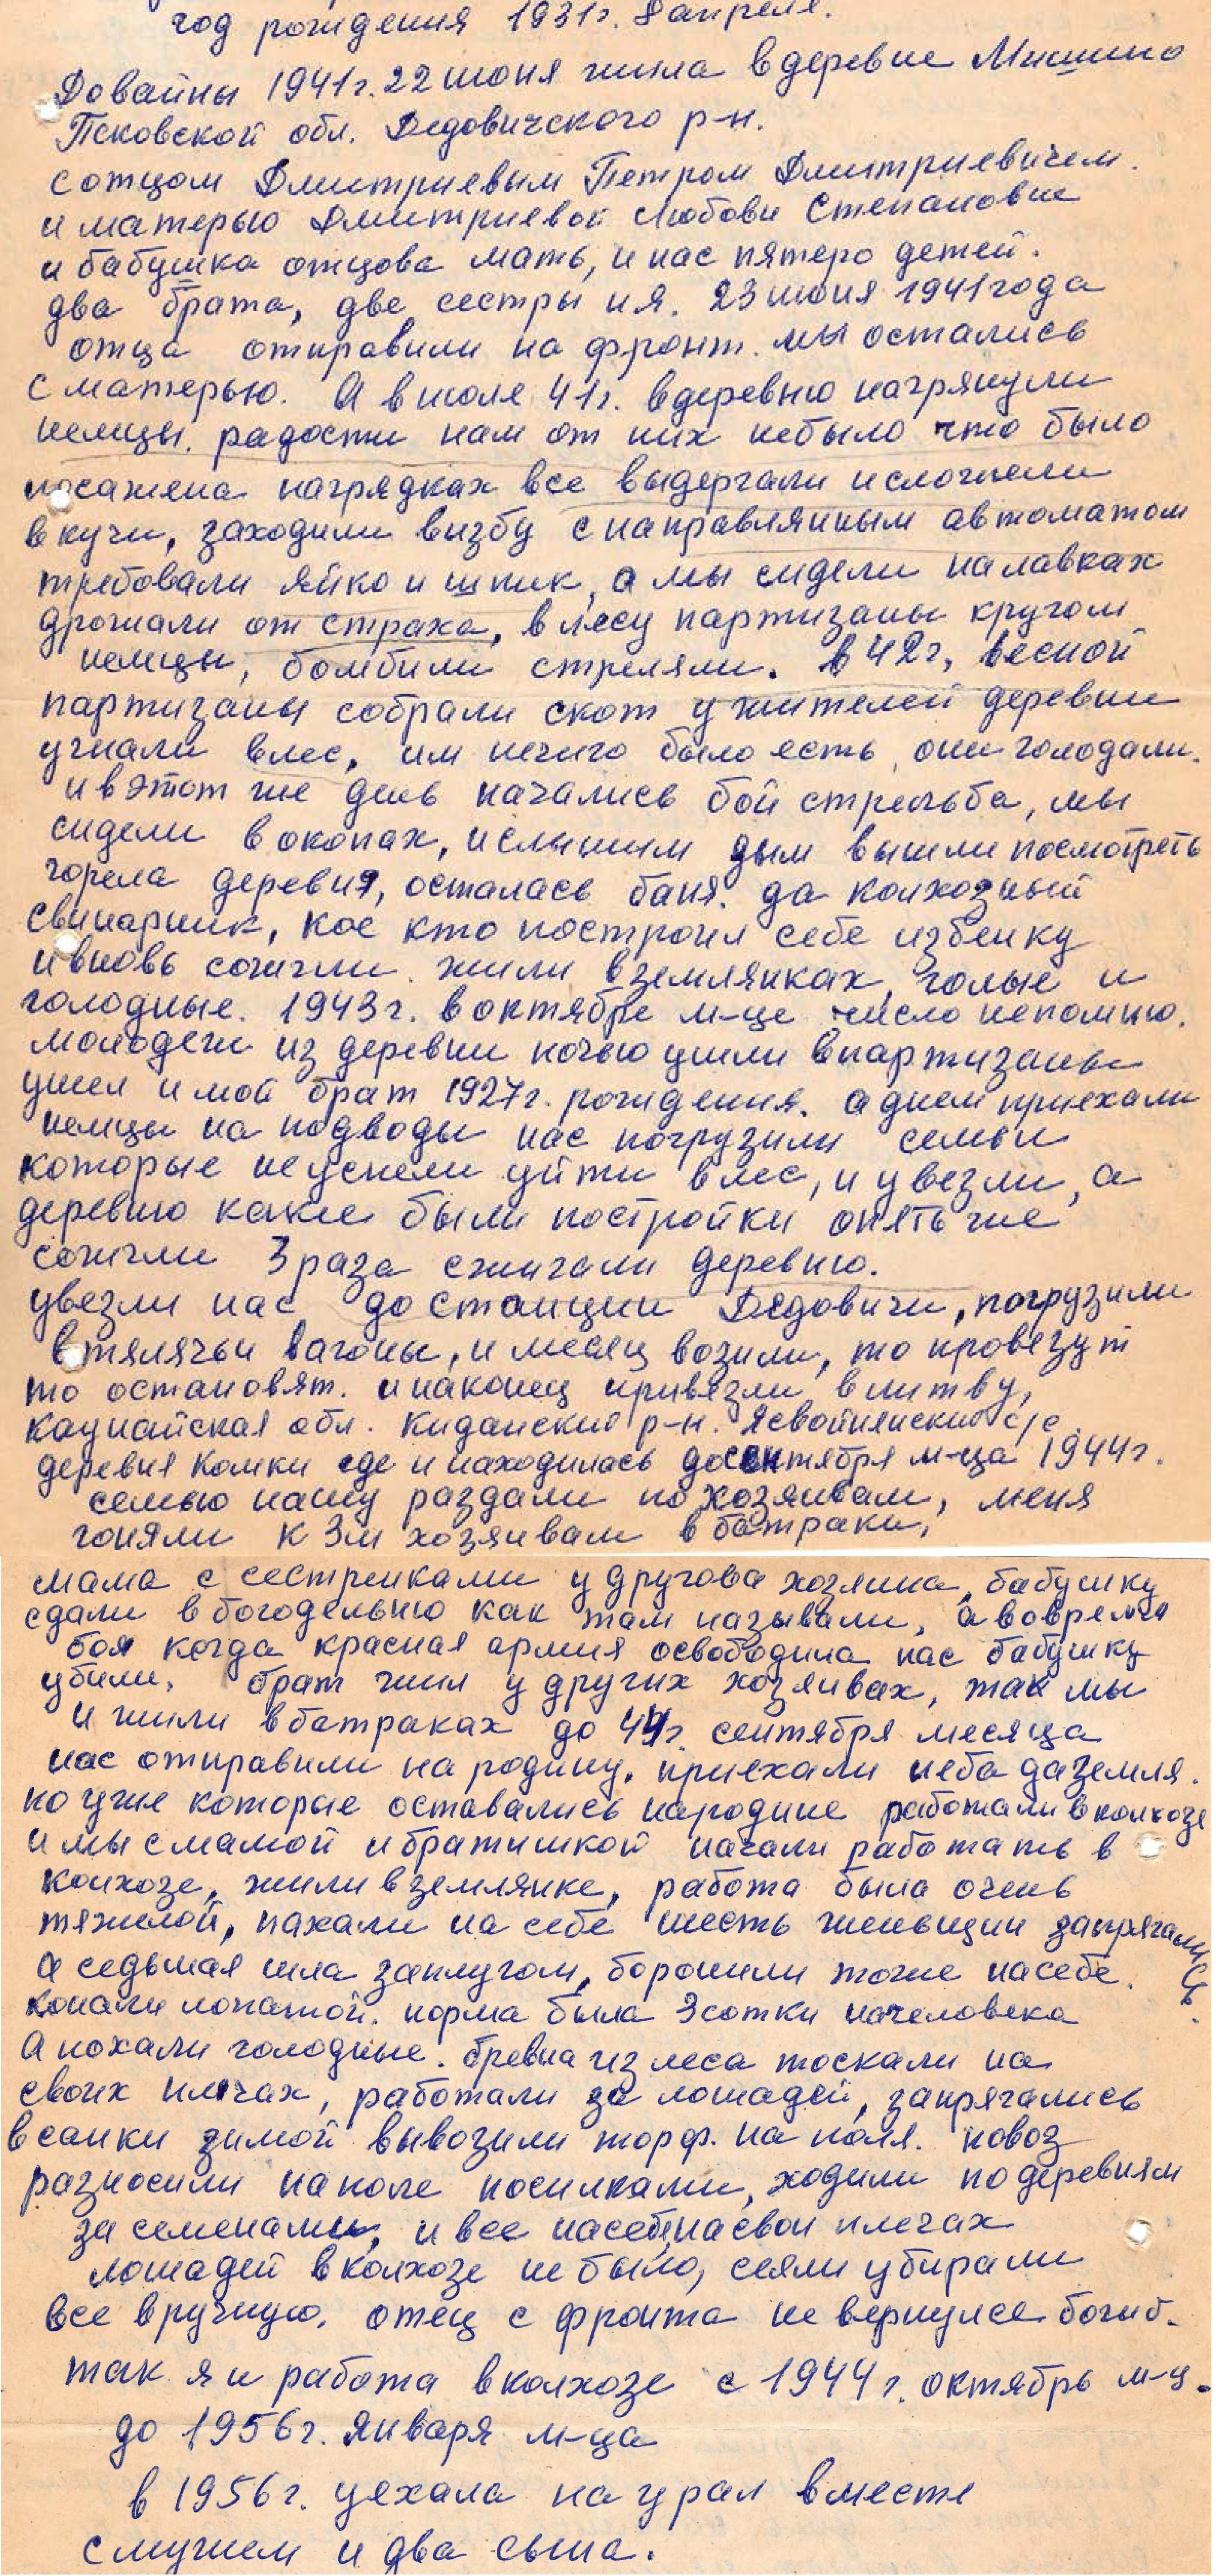 год рождения 1931г. 8 апреля.
До вайны 1941г. 22 июня жила в деревне Мишино
Псковской обл. Дедовичского р-н.
с отцом Дмитриевым Петром Дмитриевичем.
и матерью Дмитриевой Любови Степановне
и бабушка отцова мать, и нас пятеро детей.
два брата, две сестры и я. 23 июня 1941 года
отца отправили на фронт. мы остались
с матерью. А в июле 41г. в деревню нагрянули
немцы. радости нам от них небыло что было
посажена нагрядках все выдергали и сложили
в кучи, заходили визбу с направлянным автоматом
требовали яйко и шпик, а мы сидели на лавках
дрожали от страха, в лесу партизаны кругом
немцы, бомбили стреляли. в 42г, весной
партизаны собрали скот у жителей деревни
угнали влес, им нечего было есть, они голодали.
и в этот же день начались бой стрельба, мы
сидели в окопах, и слышим дым вышли посмотреть
горела деревня, осталась баня. да колхозный
свинарник, кое кто построил себе избенку
и вновь сожгли. жили в землянках, голые и
голодные. 1943г. в октябре м-це число непомню.
молодеж из деревни ночью ушли впартизаны
ушел и мой брат 1927г. рождения. а днем приехали
немцы на подводы нас погрузили семьи
которые не успели уйти влес, и увезли, а
деревню какие были постройки опять же
сожгли 3 раза сжигали деревню.
увезли нас до станции Дедовичи, погрузили
в тялячьи вагоны, и месяц возили, то провезут
то остановят. и наконец привязли в литву,
каунайская обл. Киданский р-н. Ясвойнянский с/с
деревня Комки где и находилась до сентября м-ца 1944г.
семью нашу раздали по хозяивам, меня
гоняли к 3м хозяивам в батраки,
мама с сестренками у другова хозяина, бабушку
сдали в богодельню как там называли, а вовремя
боя когда красная армия освободила нас бабушку
убили, брат жил у других хозяивах, так мы
и жили в батраках до 44г. сентября месяца
нас отправили на родину. приехали неба да земля.
но уже которые оставались народине работали в колхозе
и мы с мамой и братишкой начали работать в
колхозе, жили в землянке, работа была очень
тяжелой, пахали на себе шесть женьщин запрягались
а седьмая шла заплугом, боронили тоже насебе.
копали лопатой. норма была 3 сотки начеловека
А похали голодные. бревна из леса тоскали на
своих плечах, работали за лошадей, запрягались
в санки зимой вывозили торф. на поля. новоз
разносили на поле носилками, ходили по деревням
за семенами, и все насебе, на свои плечах
лошадей в колхозе не было, сеяли убирали
все вручную. отец с фронта не вернулся богиб.
так я и работа в колхозе с 1944г. октябрь м-ц.
до 1956г. января м-ца
в 1956г. уехала на урал вместе
с мужем и два сына.